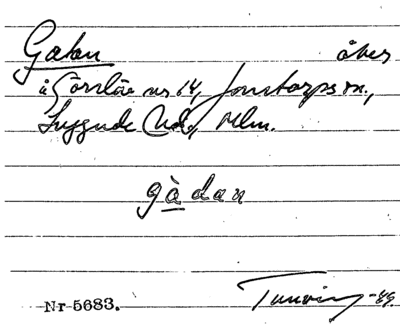 Gatan åker
å Görslöv nr 14, Jonstorps sn.,
Luggude hd, Mlm.
gàdan
Nr 5683. Tunving -49